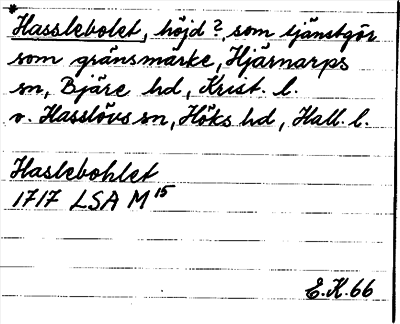 * Hasslebolet, höjd?, som tjänstgör
som gränsmärke, Hjärnarps
sn, Bjäre hd, Krist. l.
v. Hasslövs sn, Höks hd, Hall. l.
Haslebohlet
1717 LSA M 15
E.K. 66